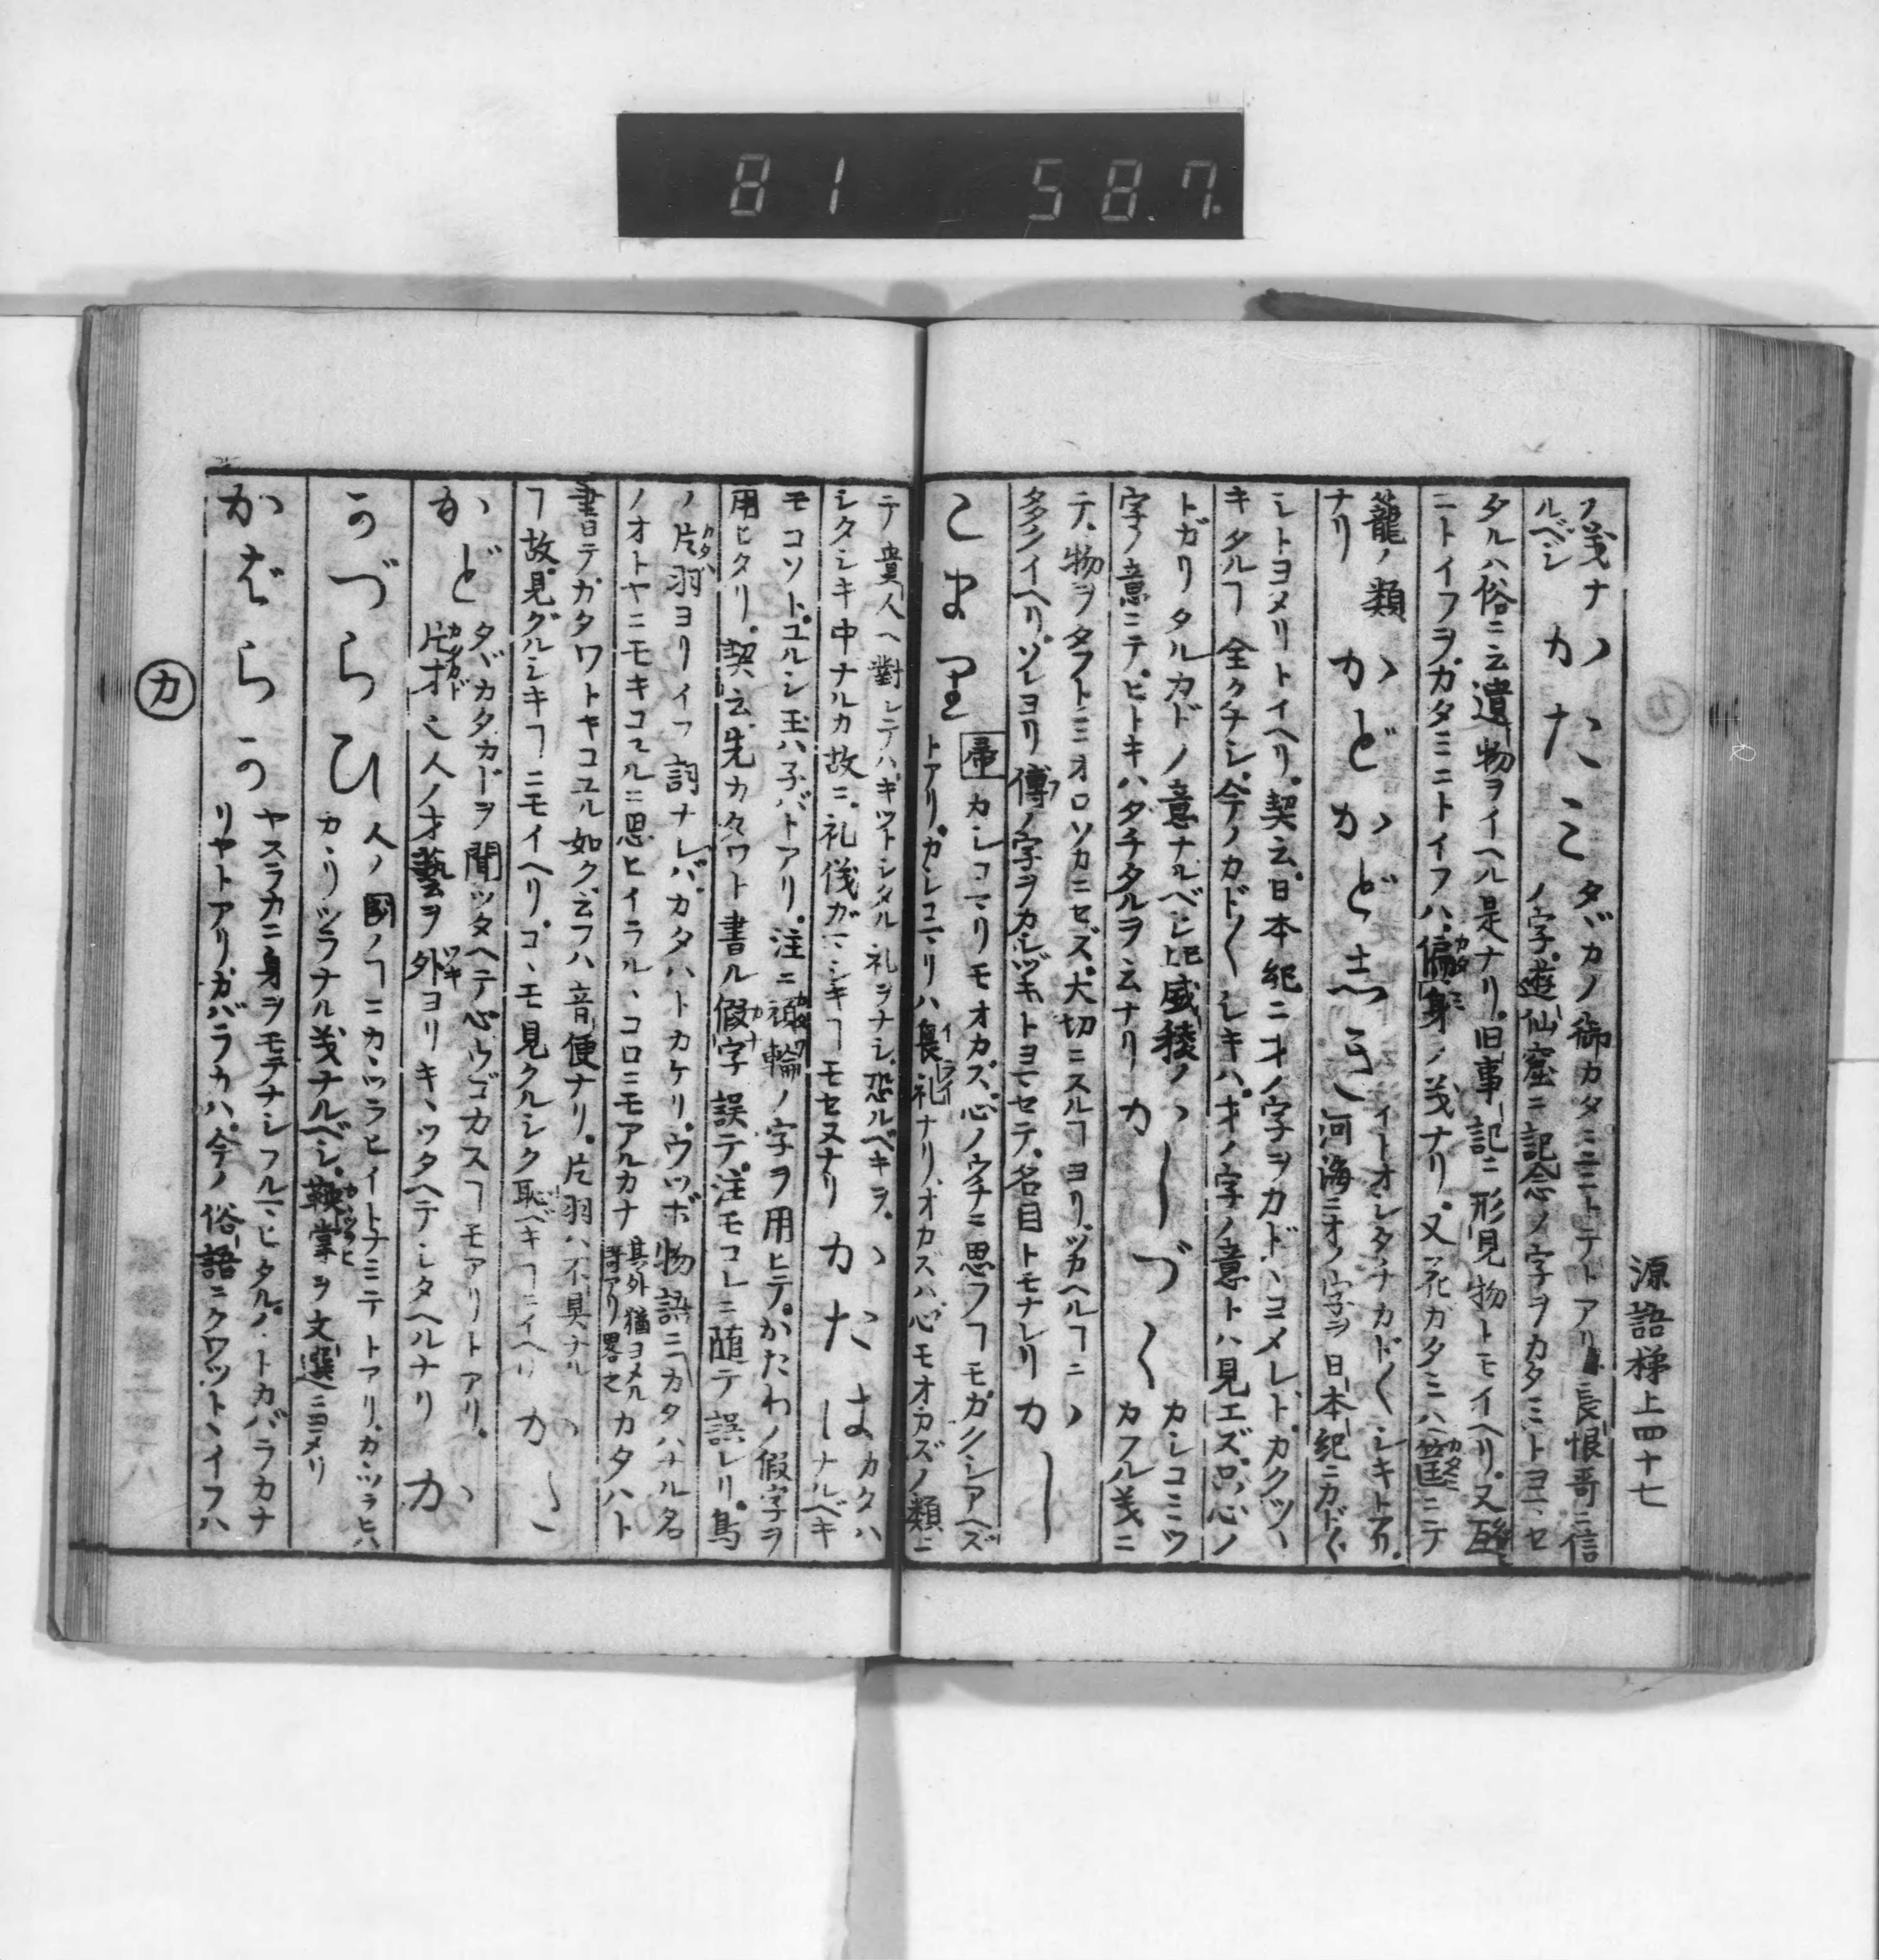 81 58.7.
源語梯上四十七
ノ義ナ
ルベシ
かたみ
タヾカノ御カタミニトテトアリ長恨哥ニ信
ノ字遊仙窟ニ記念ノ字ヲカタミトヨマセ
タルハ俗ニ云遺物ヲイヘル是ナリ。旧事記ニ形見物トモイヘリ。又
ニトイフヲ。カタミニトイフハ。偏身ノ義ナリ。又花ガタミハ筐ニテ
籠ノ類
ナリ
かどかどしき
イトオシタチカド〳〵シキトアリ。
河海ニオノ字ヲ日本紀ニカド〳〵
シトヨメリトイヘリ。契云。日本紀ニ才ノ字ヲカドヽヨメレド。カクツヽ
キタルヿ全クナシ。今ノカド〳〵シキハ。才ノ字ノ意トハ見エズ。只心ノ
トガリタルカドノ意ナルベシ
字ノ意ニテ。ヒトキハダチタルヲ云ナリ
かしづく
カシコミツ
カフル義ニ
テ。物ヲタフトミオロソカニセズ。大切ニスルヿヨリ。ツカヘルヿニ
多クイヘリ。ソレヨリ傅ノ字ヲカシヅキトヨマセテ。名目トモナレリ
かし
こまり
帚カシコマリモオカズ。心ノウチニ思フヿモカクシアヘズ
トアリ。カシコマリハ畏礼ナリ。オカズハ心モオカズノ類ニ
テ貴人ヘ對シテハキツトシタル礼ヲナシ。恐ルベキヲ。
シタシキ中ナルカ故ニ。礼儀ガマシキヿモセヌナリ
かたは
カタハ
ナルベキ
モコソト。ユルシ玉ハ子バトアリ。注ニ輪ノ字ヲ用ヒテ。かたわノ假字ヲ
用ヒタリ。契云。先カタワト書ル假字誤テ。注モコレニ随テ誤レリ。鳥
ノ片羽ヨリイフ詞ナレバ。カタハトカケリ。ウツボ物語ニ。カタハナル名
ノオトヤニモキコマルニ思ヒイラルヽコロニモアルカナ其外猶ヨメル哥アリ畧セカタハト
書テガタワトキコユル如ク云フハ音便ナリ。片羽ハ不具ナル
ヿ故。見グルシキヿニモイヘリ。コヽモ見クルシク恥ベキヿニイヘリ
かど
タヾカタカドヲ聞ツタヘテ心ウゴカスヿモアリトアリ。
片才ハ人ノ才藝ヲ外ヨリキヽツタヘテシタヘルナリ
か
かづらひ
人ノ國ノヿニカヽツラヒイトナミテトアリ。カヽツラヒハ
カヽリツラナル義ナルベシ。鞅掌ヲ文選ニヨメリ
かばらか
ヤスラカニ身ヲモテナシフルマヒタル。トカバラカナ
リヤトアリカバラカハ。今ノ俗語ニクワツトヽイフハ
カ